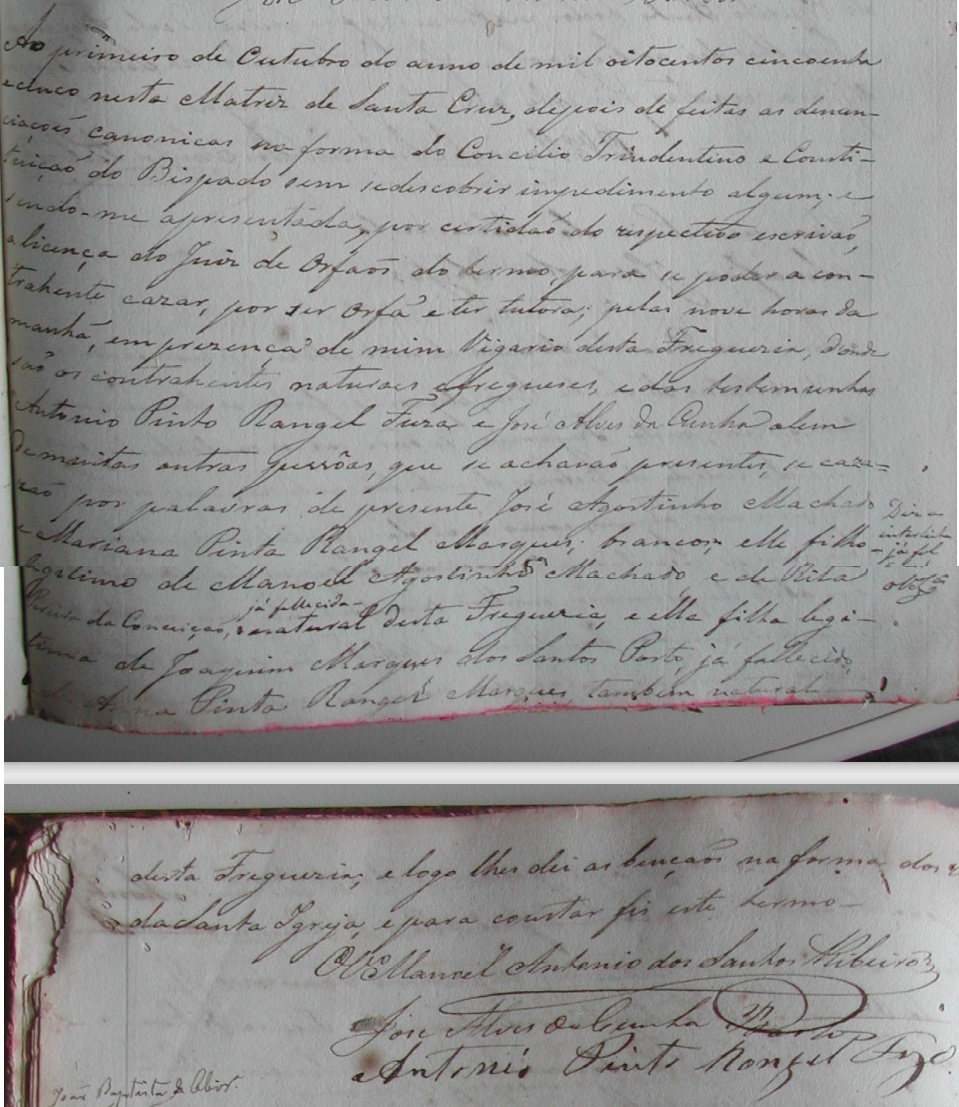 Ao primeiro de Outubro do anno de mil oitocentos cincoenta
e cinco nesta Matriz de Santa Cruz, depois de feitas as denun-
ciaçoẽs canonicas na forma do Concilio Trindentino e Consti-
tuiçaõ do Bispado sem se descobrir impedimento algum; e
sendo-me apresentada, por certidaõ do respectivo escrivaõ,
a licença do Juiz de Orfaõs do termo, para se poder a con-
trahente cazar, por ser orfã e ter tutora; pelas nove horas da
manhã, em prezença de mim Vigario desta Freguezia, donde
saõ os contrahentes naturaes e freguezes, e das testemunhas
Antonio Pinto Rangel Fuza e José Alves da Cunha alem
de muitas outras pessôas, que se achavaõ presentes, se caza-
raõ por palavras de presente José Agostinho Machado
e Mariana Pinta Rangel Marques, brancos; elle filho
legitimo de Manoel Agostinho Machado e de Rita
Pereira da Conceição, já fallecida- natural desta Freguezia, e ella filha legi-
tima de Joaquim Marques dos Santos Porto, já fallecido,
de Anna Pinta Rangel Marques, tambem natural
Diz a
interlinha
- já fal
desta Freguezia; e logo lhes dei as bençaõs na forma dos
da Santa Igreja, e para constar fis este termo-
O Vigº Manoel Antonio dos Santos Ribeiro
José Alves da Cunha Porto
Antonio Pinto Rangel Fuza
João Baptista de Olivrª